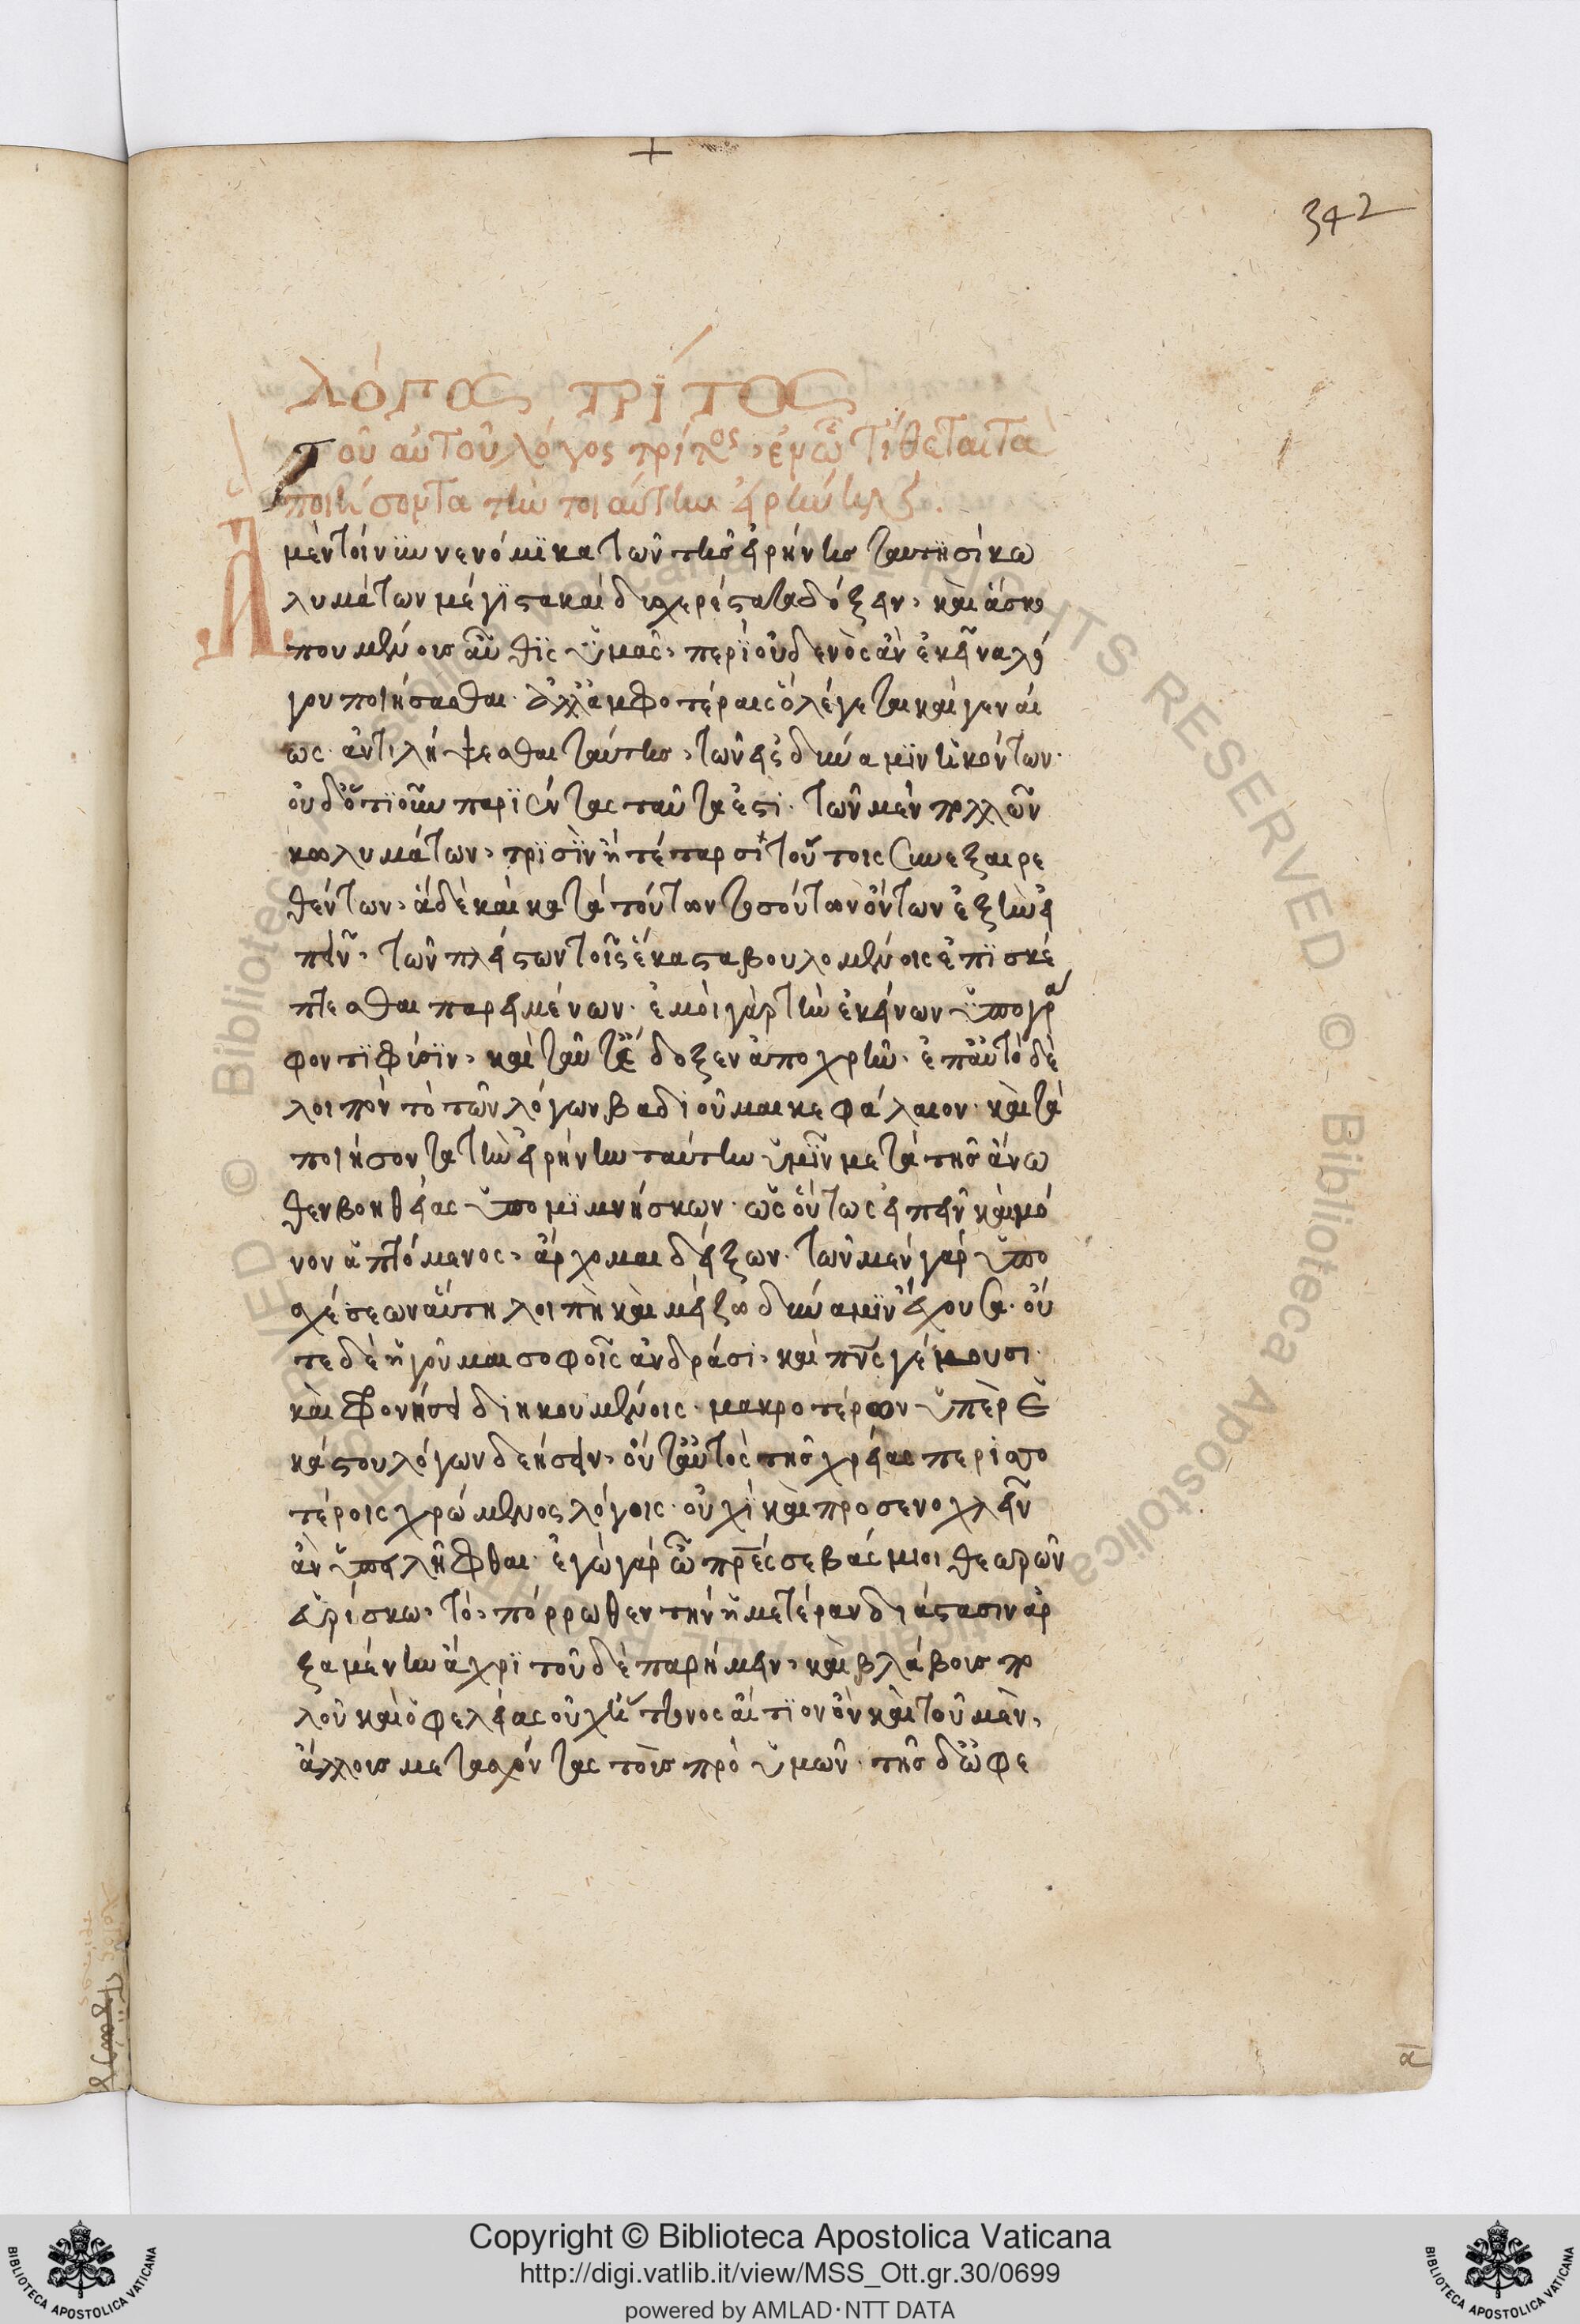 342
λόγος τρίτος
τοῦ αὐτοῦ λόγος τρίτος. ἐν ᾧ τίθεται τὰ
ποιήσοντα τὴν τοιαύτην εἰρήνην
Ἃ μὲν τοίνυν νενόμικα τῶν τῆς εἰρήνης ταυτησὶ κω
λυμάτων μέγιστα καὶ δυσχερέστατα δόξειν, καὶ ἃ σκο
πουμένοις αὖθις ὑμᾶς, περὶ οὐδενὸς ἂν ἐκεῖνα λό
γου ποιήσασθαι. ἀλλ' ἀμφοτέραις ὃ λέγεται καὶ γενναί
ως ἀντιλήψεσθαι ταύτης, τῶν εἰς δύναμιν ἡκόντων.
οὐδ' ὁτιοῦν παριέντας ταῦτα ἐστί. τῶν μὲν πολλῶν
κωλυμάτων, τρισὶν ἢ τέτταρσι τούτοις συνεξαιρε
θέντων, ἃ δὲ καὶ κατὰ τούτων τοσούτων ὄντων ἐξῆν εἰ
πεῖν, τῶν πλείστων τοῖς ἕκαστα βουλομένοις ἐπισκέ
πτεσθαι παρειμένων. ἐμοὶ γὰρ τὴν ἐκείνων ὑπογρά
φοντι φύσιν, καὶ ταῦτ' ἔδοξεν ἀποχρῆν. ἐπ' αὐτὸ δὲ
λοιπὸν τὸ τῶν λόγων βαδιοῦμαι κεφάλαιον. καὶ τὰ
ποιήσοντα τὴν εἰρήνην ταύτην ὑμῖν μετὰ τῆς ἄνω
θεν βοηθείας ὑπομιμνήσκων. ὡς οὕτως εἰπεῖν καὶ μό
νον ἁπτόμενος, ἄρχομαι δείξων. τῶν μὲν γὰρ ὑπο
σχέσεων αὕτη λοιπὴ καὶ μείζω δύναμιν ἔχουσα. οὔ
τε δὲ ἡγοῦμαι σοφοῖς ἀνδράσι, καὶ πνς γέμουσι
καὶ φρονήσει διηκουμένοις. μακροτέρων ὑπὲρ ἑ
κάστου λόγων δεήσειν, οὔτ' αὐτὸς τῆς χρείας περιττο
τέροις χρώμενος λόγοις. οὐχὶ καὶ προσενοχλεῖν
ἂν ὑπειλῆφθαι. ἐγὼ γὰρ ὦ πρες σεβάσμιοι θεωρῶν
εὑρίσκω, τὸ, πόρρωθεν τὴν ἡμετέραν διάστασιν ἀρ
ξαμένην ἄχρι τοῦδε παρήκειν, καὶ βλάβοις πο
λοῦ καὶ ὠφελείας οὐχ ἥττονος αἴτιον ὂν καὶ τοῦ μὲν,
ἄλλοις μετασχόντας τοῖς πρὸ ὑμῶν. τῆς δ' ὠφε
α
Copyright © Biblioteca Apostolica Vaticana
http://digi.vatlib.it/view/MSS_Ott.gr.30/0699
powered by AMLAD·NTT DATA